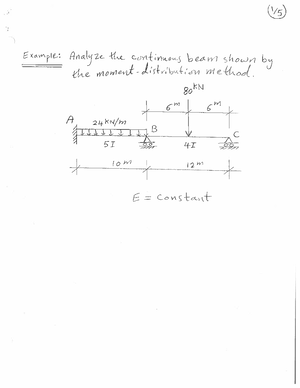 (1/5)
Example: Analyze the continuous beam shown by
the moment-distribution method.
80 KN
6 m 6 m
A
24 KN/m
B
C
5I 4I
10 m 12 m
E = Constant